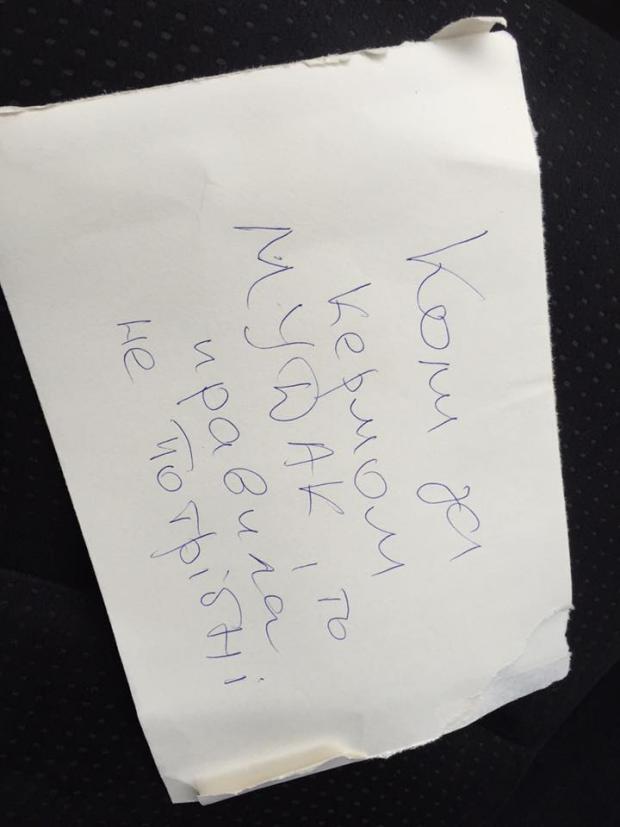 Коли за
кермом
МУДАК, то
правила
не потрібні